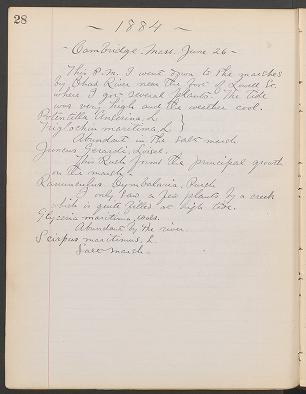 28
- 1884 -
- Cambridge, Mass. June 26 -
This P.M. I went down to the marshes
by Charles River near the foot of Lowell St.
where I got several plants. The tide
was very high and the weather cool.
Potentilla Anserina, L. }
Triglochin maritima, L. }
Abundant in the salt marsh
Juncus Gerardi, Loisel.
This Rush forms the principal growth
on the marsh.
Ranunculus Cymbalaria, Pursh
I only saw a few plants by a creek
which is quite filled at high tide.
Glyceria maritima, Wahl.
Abundant by the river.
Scirpus maritimus, L.
Salt marsh.